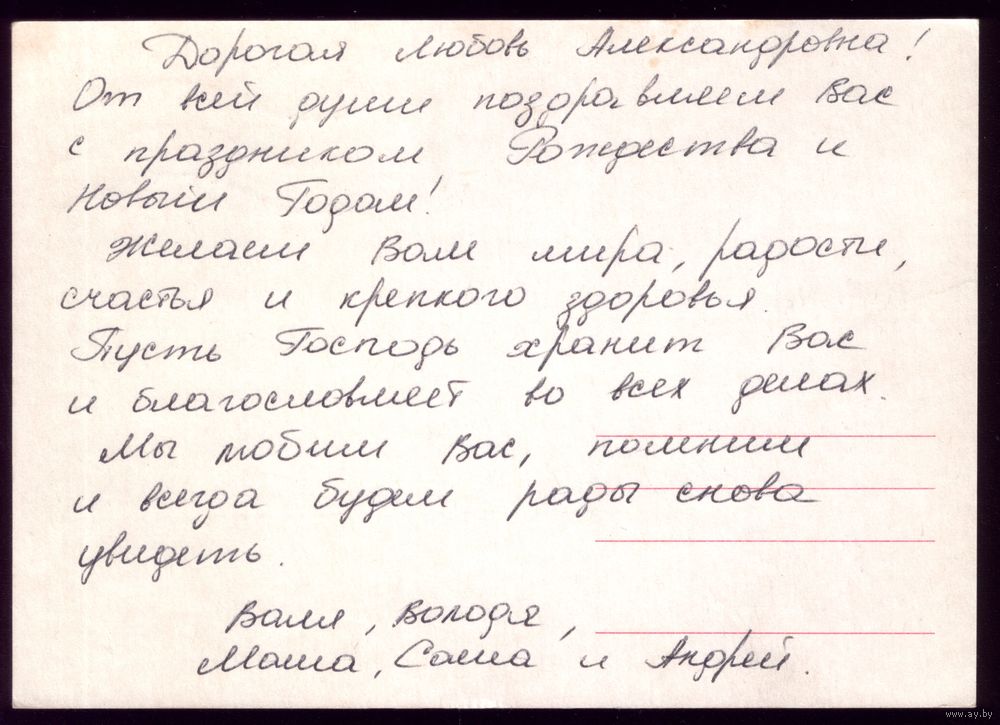 Дорогая Любовь Александровна!
От всей души поздравляем Вас
с праздником Рождества и
Новым Годом!
Желаем Вам мира, радости,
счастья и крепкого здоровья.
Пусть Господь хранит Вас
и благословляет во всех делах.
Мы любим Вас, помним
и всегда будем рады снова
увидеть.
Валя, Володя,
Маша, Саша и Андрей.
www.ay.by